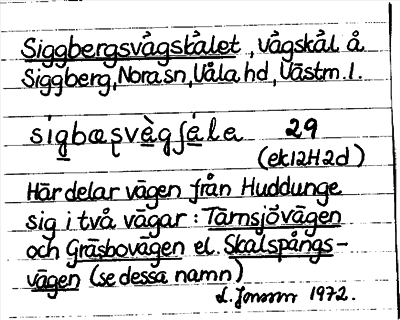 Siggbergsvägskälet, vägskäl å
Siggberg, Nora sn, Våla hd, Västm. l.
29
(ek12H2d)
Här delar vägen från Huddunge
sig i två vägar: Tärnsjövägen
och Gräsbovägen el. Skalspångs-
vägen (se dessa namn)
1972.